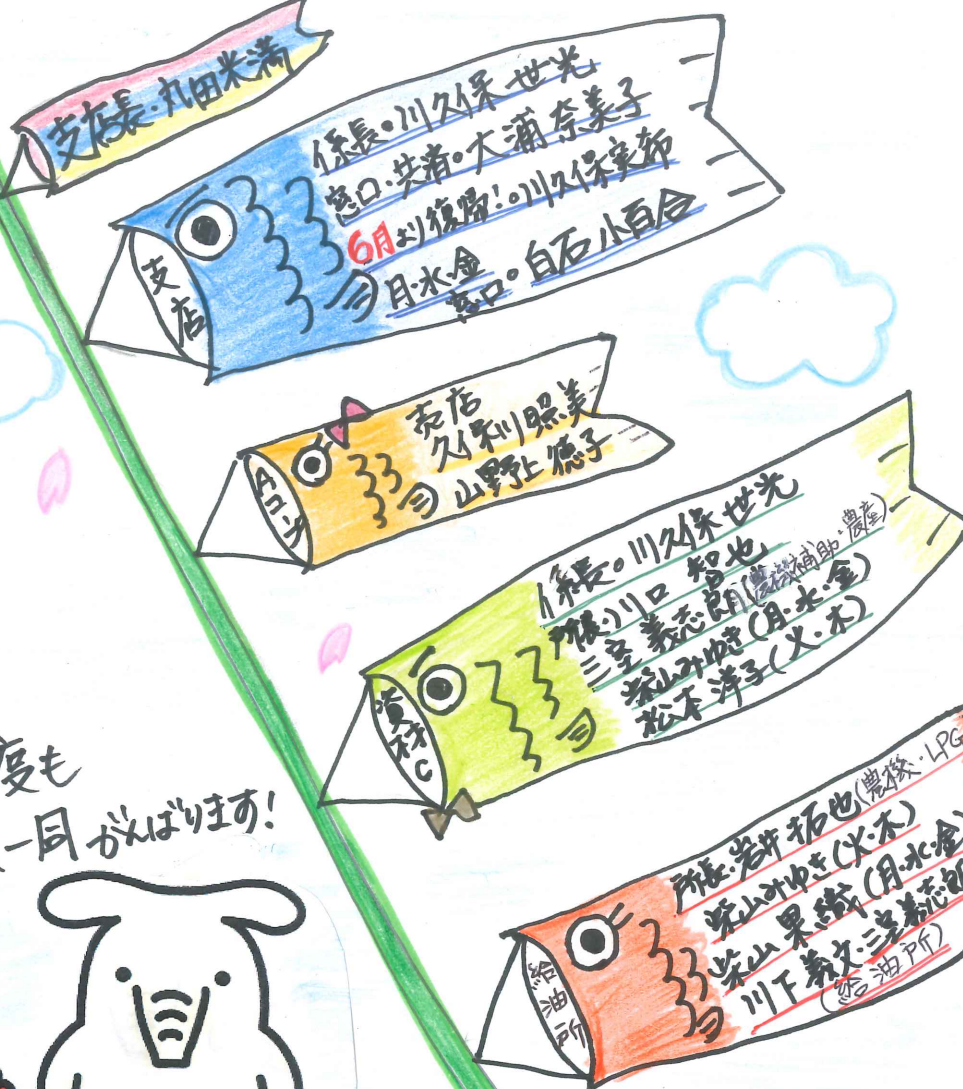 支店長・丸田米満
支店
係長。川久保 世光
窓口・共済。大浦 奈美子
6月より復帰!。川久保実希
月・水・金
窓口。白石 小百合
Aコープ
売店
久保川 照美
山野上 徳子
資材C
係長。川久保 世光
所長・川口 智也
三室 義志郎(農機補助・農産)
柴山みゆき(月・水・金)
松本 洋子(火・木)
給油所
所長・岩井 拓也(農機・LPG
柴山みゆき(火・木)
柴山 果織(月・水・金)
川下 義文・三室義志郎
(給油所)
度も
一同がんばります!